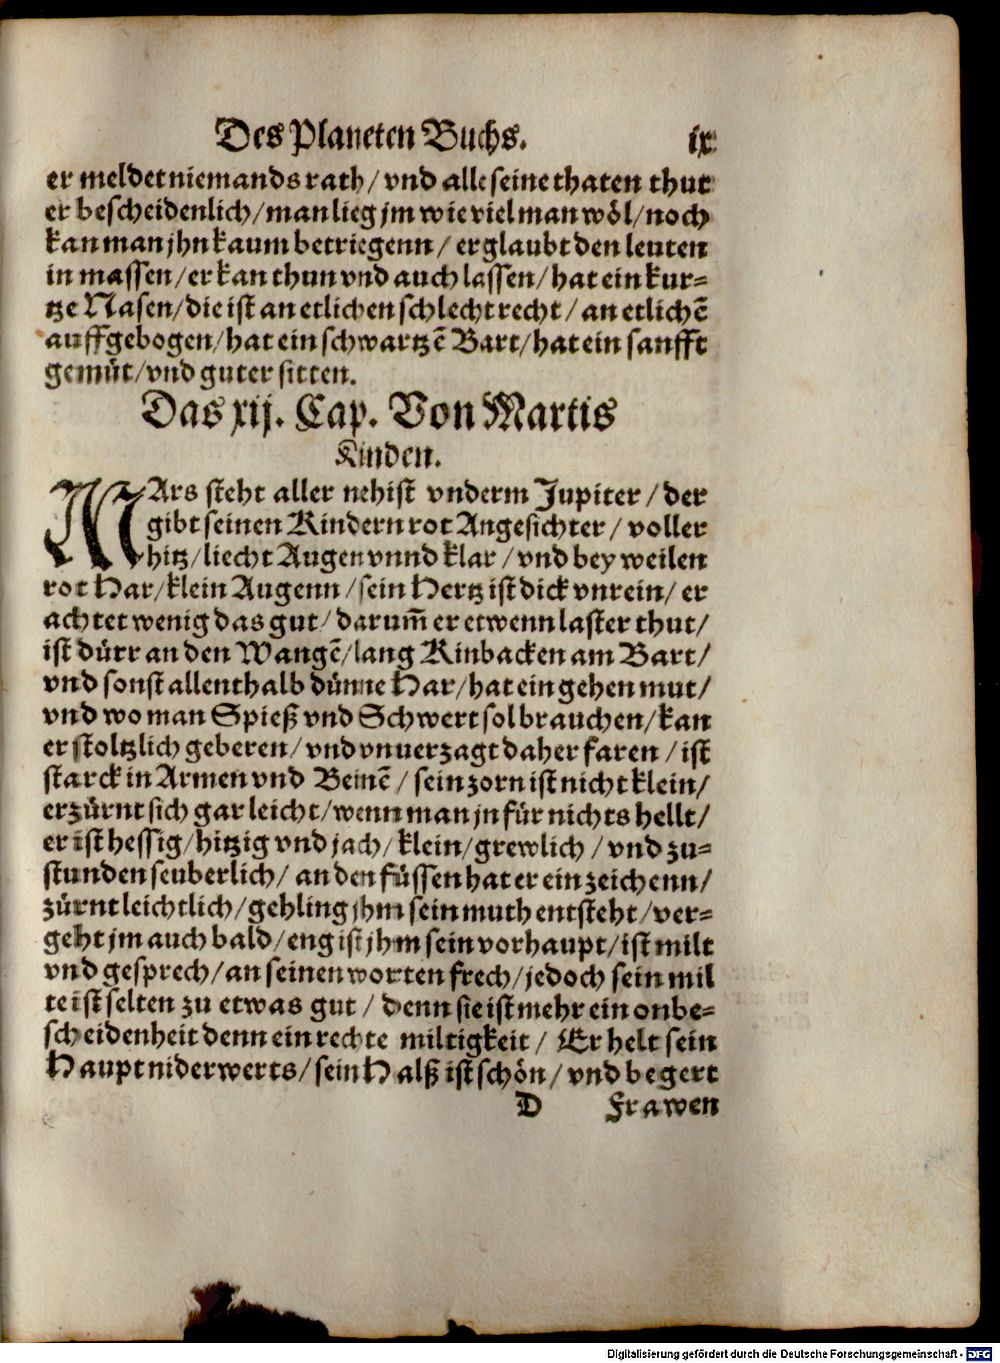 Des Planeten Buchs. ix
er meldet niemands rath/ vnd alle seine thaten thut
er bescheidenlich/ man lieg jm wie viel man wöl/ noch
kan man jhn kaum betriegenn/ er glaubt den leuten
in massen/ er kan thun vnd auch lassen/ hat ein kur-
tze Nasen/ die ist an etlichen schlecht recht/ an etlichē
auffgebogen/ hat ein schwartzē Bart/ hat ein sanfft
gemüt/ vnd guter sitten.
Das xij. Cap. Von Martis
Kinden.
MArs steht aller nehist vnderm Jupiter/ der
gibt seinen Kindern rot Angesichter/ voller
hitz/ liecht Augen vnnd klar/ vnd bey weilen
rot Har/ klein Augenn/ sein Hertz ist dick vnrein/ er
achtet wenig das gut/ darum̃ er etwenn laster thut/
ist dürr an den Wangē/ lang Kinbacken am Bart/
vnd sonst allenthalb dünne Har/ hat ein gehen mut/
vnd wo man Spieß vnd Schwert sol brauchen/ kan
er stoltzlich geberen/ vnd vnuerzagt daher faren/ ist
starck in Armen vnd Beinē/ sein zorn ist nicht klein/
erzürnt sich gar leicht/ wenn man jn für nichts hellt/
er ist hessig/ hitzig vnd jach/ klein/ grewlich/ vnd zu-
stunden seuberlich/ an den füssen hat er ein zeichenn/
zürnt leichtlich/ gehling jhm sein muth entsteht/ ver-
geht jm auch bald/ eng ist jhm sein vorhaupt/ ist milt
vnd gesprech/ an seinen worten frech/ jedoch sein mil
te ist selten zu etwas gut/ denn sie ist mehr ein onbe-
scheidenheit denn ein rechte miltigkeit/ Er helt sein
Haupt niderwerts/ sein Halß ist schön/ vnd begert
D Frawen
Digitalisierung gefördert durch die Deutsche Forschungsgemeinschaft - DFG